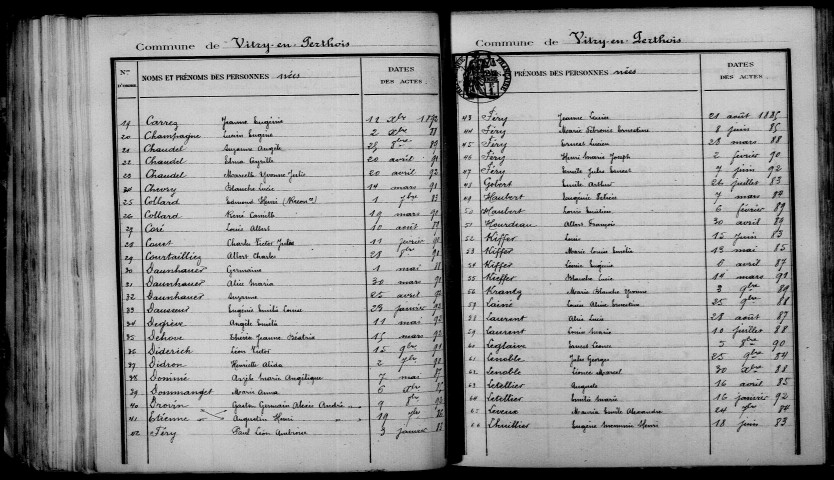 Commune de Vitry-en-Perthois
Nos D'ORDRE NOMS ET PRÉNOMS DES PERSONNES nées DATES DES ACTES
19 Carrez Jeanne Eugénie 11 Xbre 1892
20 Champagne Lucien Eugène 2 Xbre 88
21 Chaudel Suzanne Angèle 8bre 89
22 Chaudel Edma Cyrille 20 avril 91
23 Chaudel Marcelle Yvonne Julie 20 avril 92
24 Chevry Blanche Lucie 14 mars 91
25 Collard Edmond Henri 1 7bre 83
26 Collard René Camille 19 mars 91
27 Coré Louis Albert 10 août 89
28 Couet Charles Victor Jules 11 février
29 Courtaillier Albert Charles 28 8bre
30 Daunhauer Germaine 1 mai 88
31 Daunhauer Alice Maria 30 mars
32 Daunhauer Suzanne 25 avril
33 Eugénie 23 janvier
34 Degrève Angèle 11 mai 92
35 Dehove Jeanne 15 mars 92
36 Diderich Léon Victor 15 9bre
37 Didron Henriette Alida 2
38 Marie Angélique 7 mai
39 Dommanget Marie Anna 6
40 Drouin Gaston Germain Alexis André 9
41 Etienne Augustin Henri 19
42 Féry Paul Léon Ambroise 3 janvier
Commune de Vitry-en-Perthois
PRÉNOMS DES PERSONNES nées DATES DES ACTES
43 Féry Jeanne 21 août 1885
44 Féry Marie Ernestine 8 juin 85
45 Féry Ernest Lucien 28 mars 88
46 Féry Henri Marie Joseph 2 février 90
47 Féry Emile Jules Ernest 7 juin 92
48 Gobert Emile Arthur 26 juillet 83
49 Haubert Eugénie 7 mars 84
50 Haubert Louis 6 février 89
51 Hourdeau Albert François 30 avril 89
52 Kiffer Louis 15 juin 83
53 Kiffer Marie Louise 13 mai 85
54 Kiffer Eugénie 6 avril 87
55 Kieffer Blanche 14 mars 91
56 Krantz Marie Blanche Yvonne 3 9bre 89
57 Lainé Louise Alice Ernestine 25 9bre 88
58 Laurent Alice 28 août 87
59 Laurent Louis Marie 10 juillet 88
60 Leglaive Ernest 5 8bre 90
61 Lenoble Jules Georges 25 9bre 84
62 Lenoble Marcel 30 Xbre 88
63 Letellier Auguste 16 avril 85
64 Letellier Marie 16 janvier 92
65 Emile Alexandre 24 84
66 Lhuillier Eugène Henri 18 juin 83